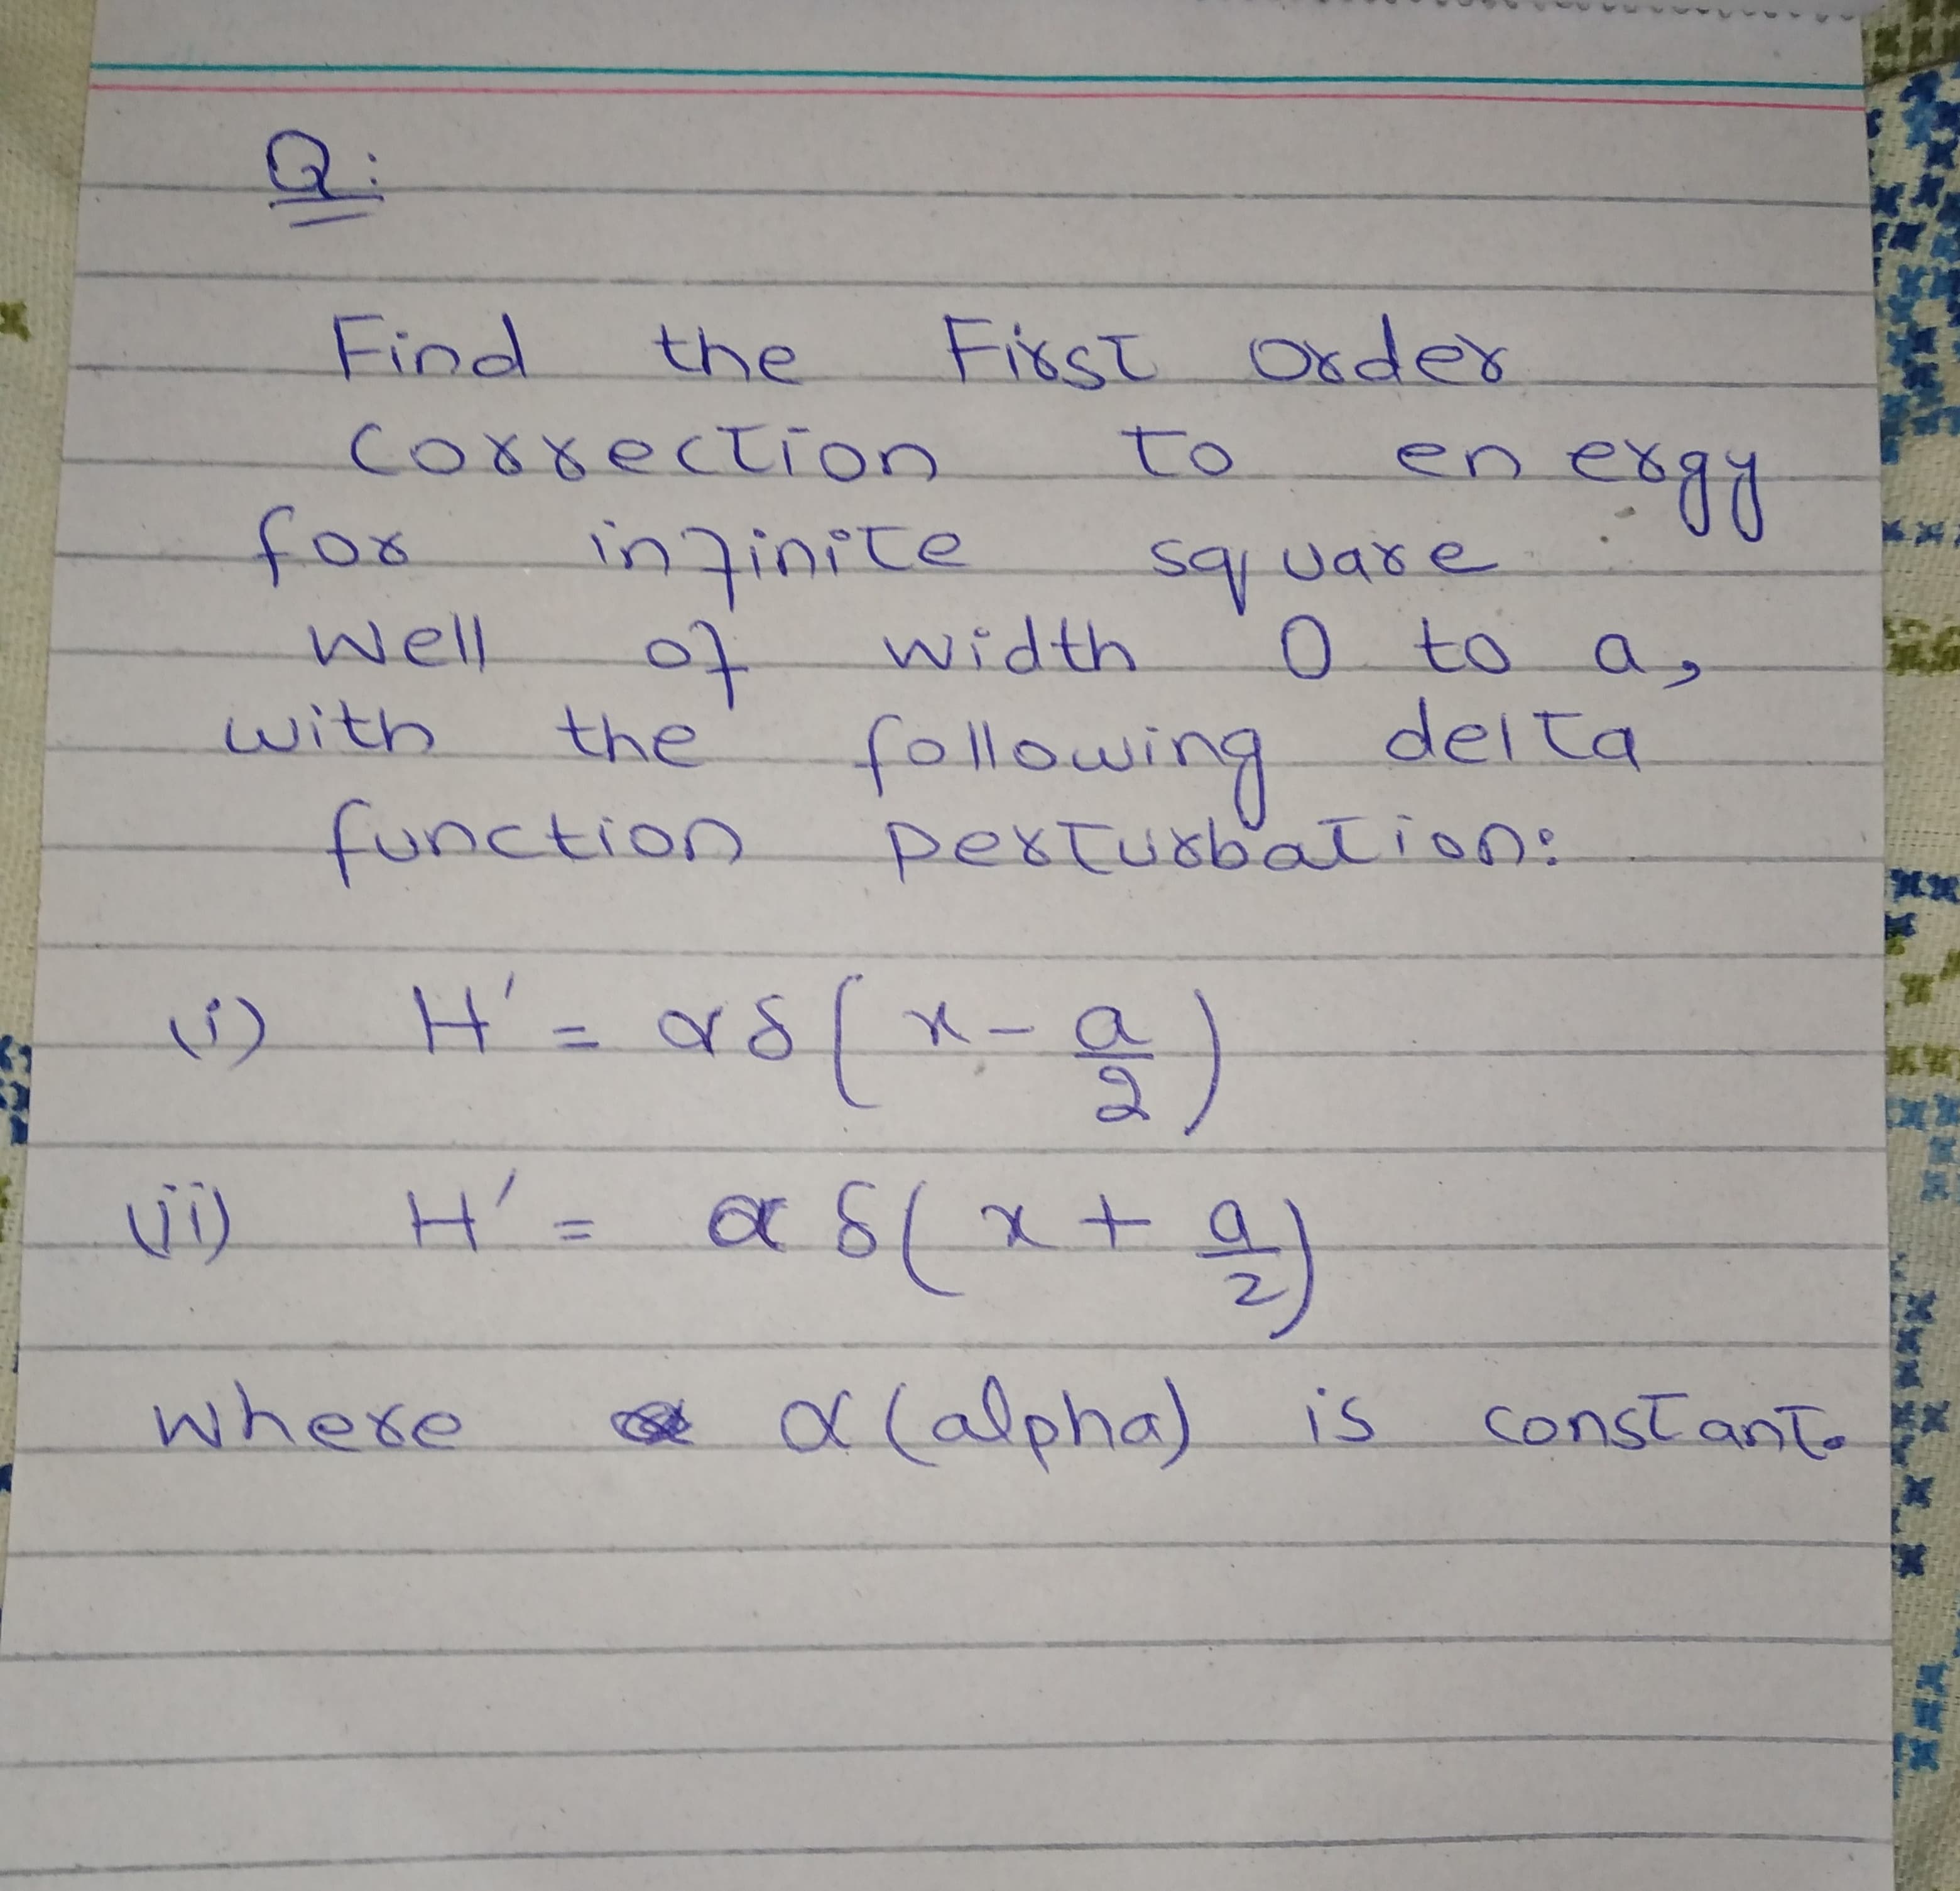 Q:
Find the First order
correction to energy
for infinite square
well of width 0 to a,
with the following delta
function perturbation:
(i) H' = αδ(x - a/2)
(ii) H' = α δ(x + a/2)
where α (alpha) is constant.